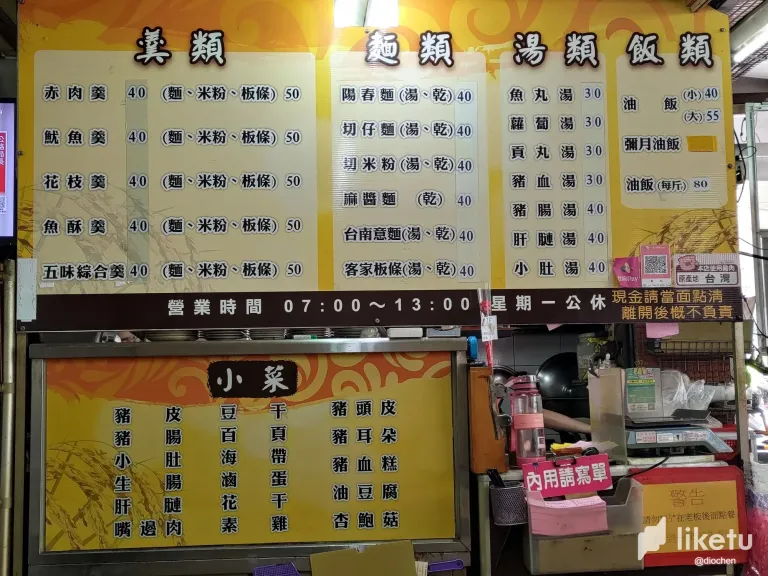 羹類
赤肉羹 40 (麵、米粉、板條) 50
魷魚羹 40 (麵、米粉、板條) 50
花枝羹 40 (麵、米粉、板條) 50
魚酥羹 40 (麵、米粉、板條) 50
五味綜合羹 40 (麵、米粉、板條) 50
麵類
陽春麵(湯、乾) 40
切仔麵(湯、乾) 40
切米粉(湯、乾) 40
麻醬麵 (乾) 40
台南意麵(湯、乾) 40
客家板條(湯、乾) 40
湯類
魚丸湯 30
蘿蔔湯 30
貢丸湯 30
豬血湯 30
豬腸湯 40
肝腱湯 40
小肚湯 40
飯類
油飯 (小) 40
(大) 55
彌月油飯
油飯(每斤) 80
本店使用豬肉
原產地 台灣
營業時間 07:00~13:00 星期一公休
現金請當面點清
離開後概不負責
小菜
豬皮
豬腸
小肚
生腸
肝腱
嘴邊肉
豆干
百頁
海帶
滷蛋
花干
素雞
豬頭皮
豬耳朵
豬血糕
油豆腐
杏鮑菇
內用請寫單
警告
liketu
@diochen